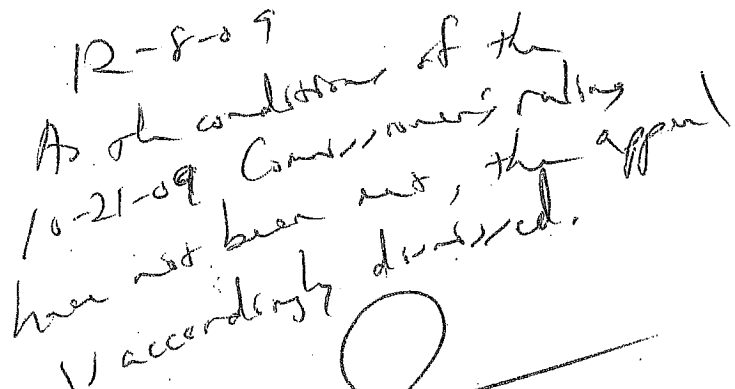 12-8-09
As the conditions of the
10-21-09 Commissioner's ruling
have not been met, the appeal
is accordingly dismissed.